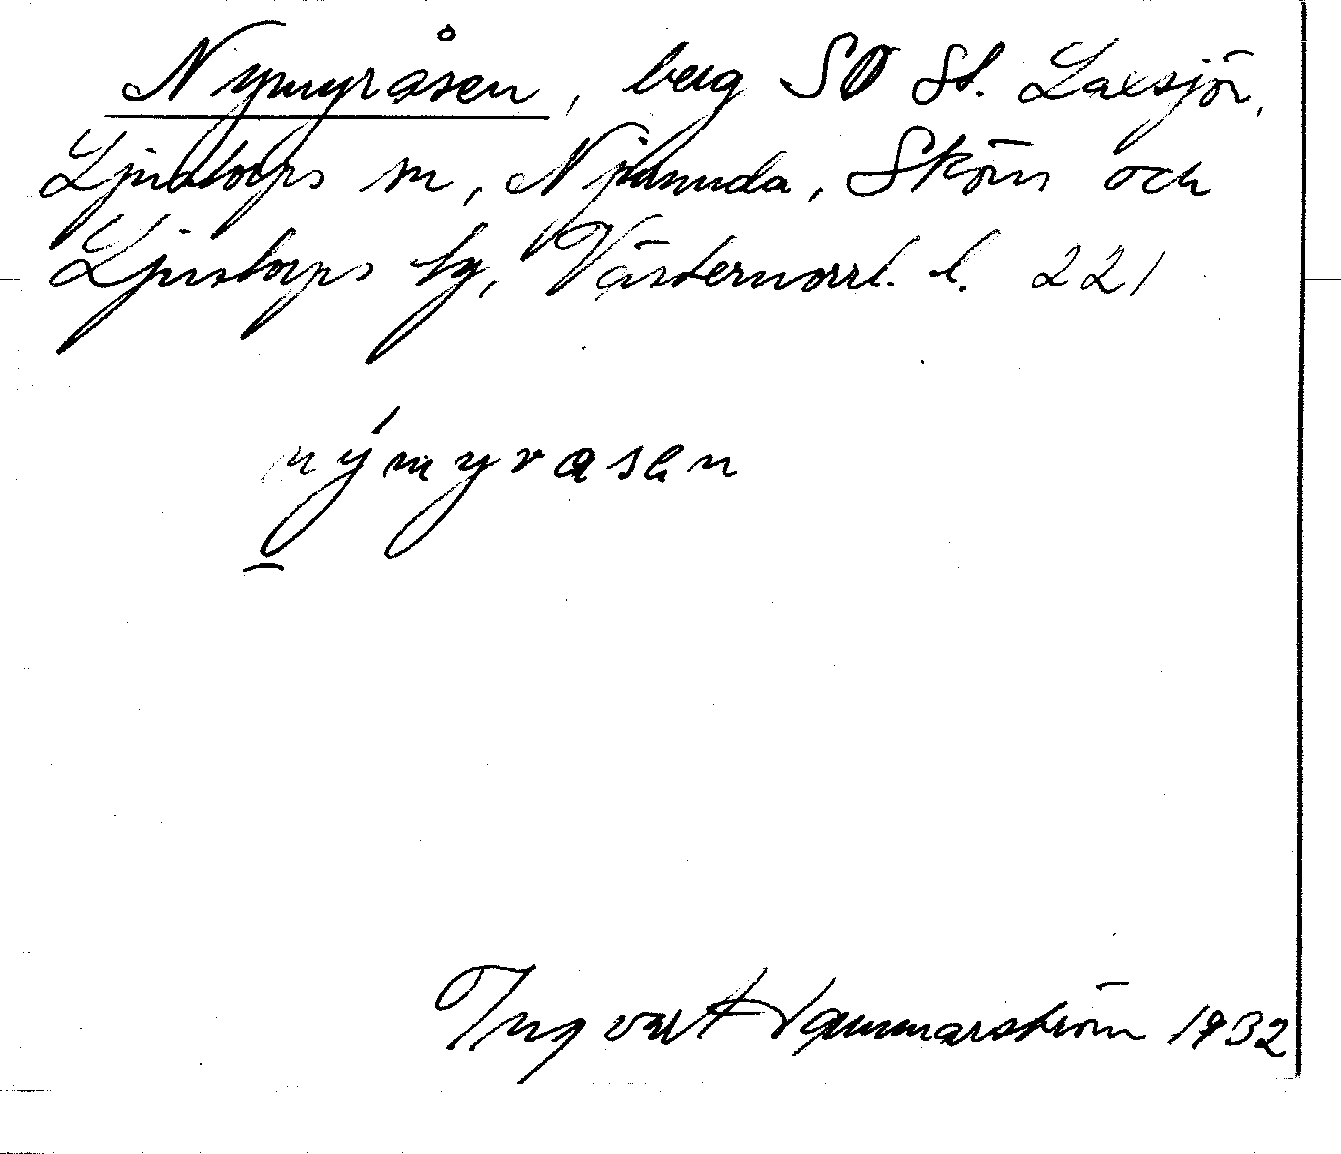 Nymyråsen, berg SO St. Laxsjön,
Ljustorps sn, Njurunda, Sköns och
Ljustorps tg, Västernorrl. l. 221
nýmyrasen
Ingvar Hammarström 1932